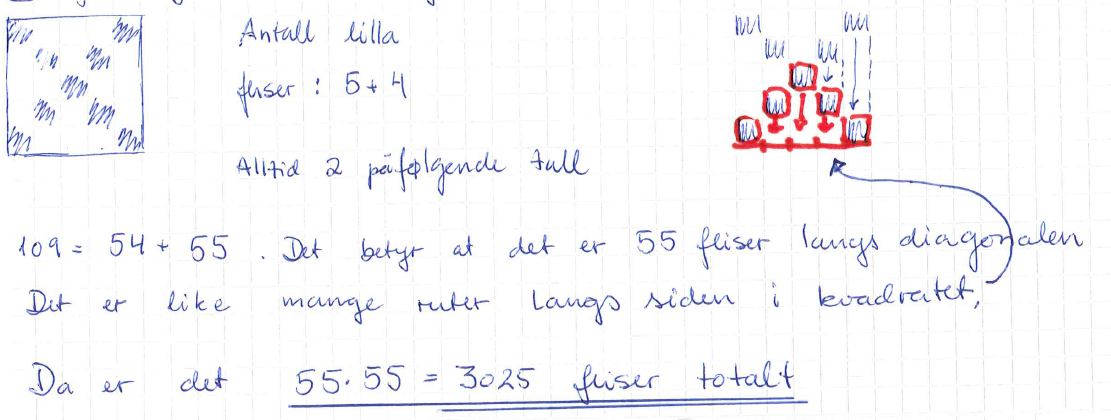 Antall lilla
fliser : 5 + 4
Alltid 2 påfølgende tall
109 = 54 + 55 . Det betyr at det er 55 fliser langs diagonalen
Det er like mange ruter langs siden i kvadratet,
Da er det 55·55 = 3025 fliser totalt